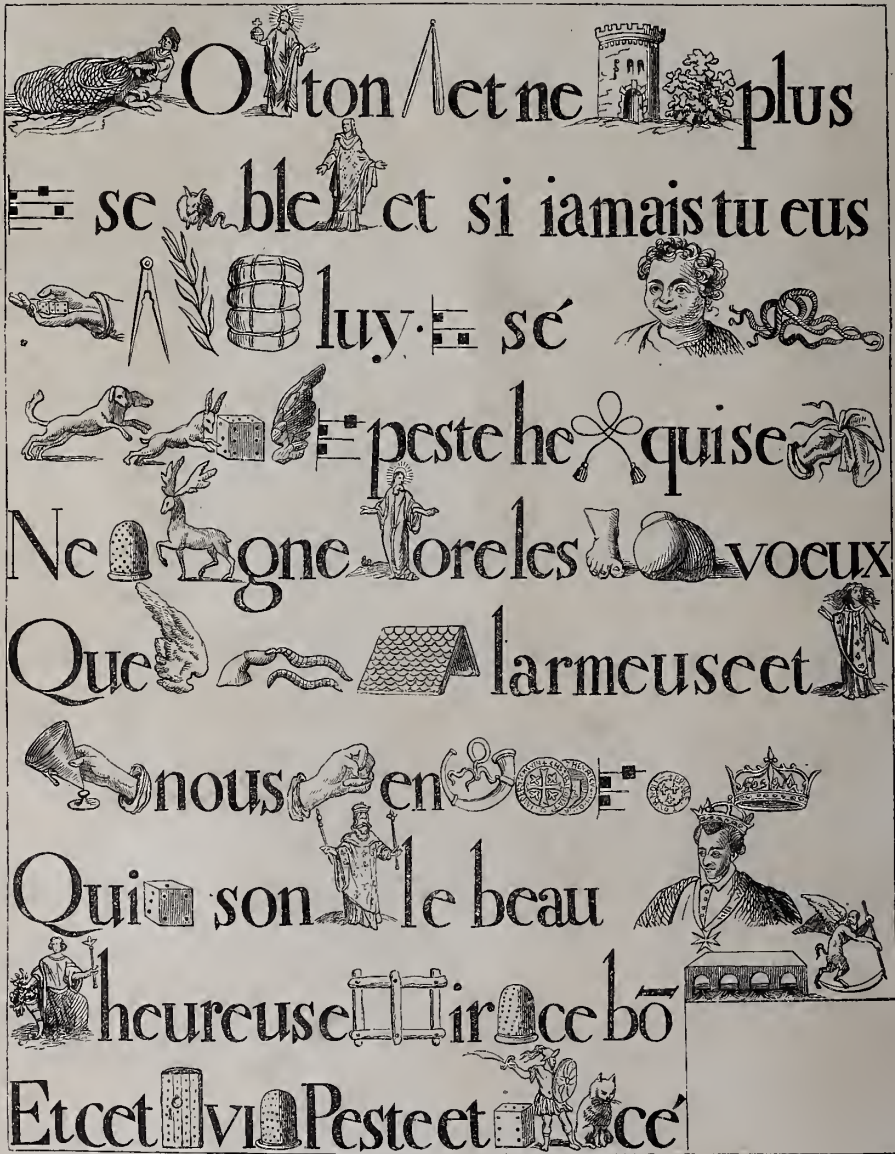 O ton et ne plus
se ble et si iamais tu eus
luy. sé
peste he qui se
Ne gne ore les voeux
Que larmeuse et
nous en
Qui son le beau
heureuse ir ce bō
Et cet vi Peste et cé